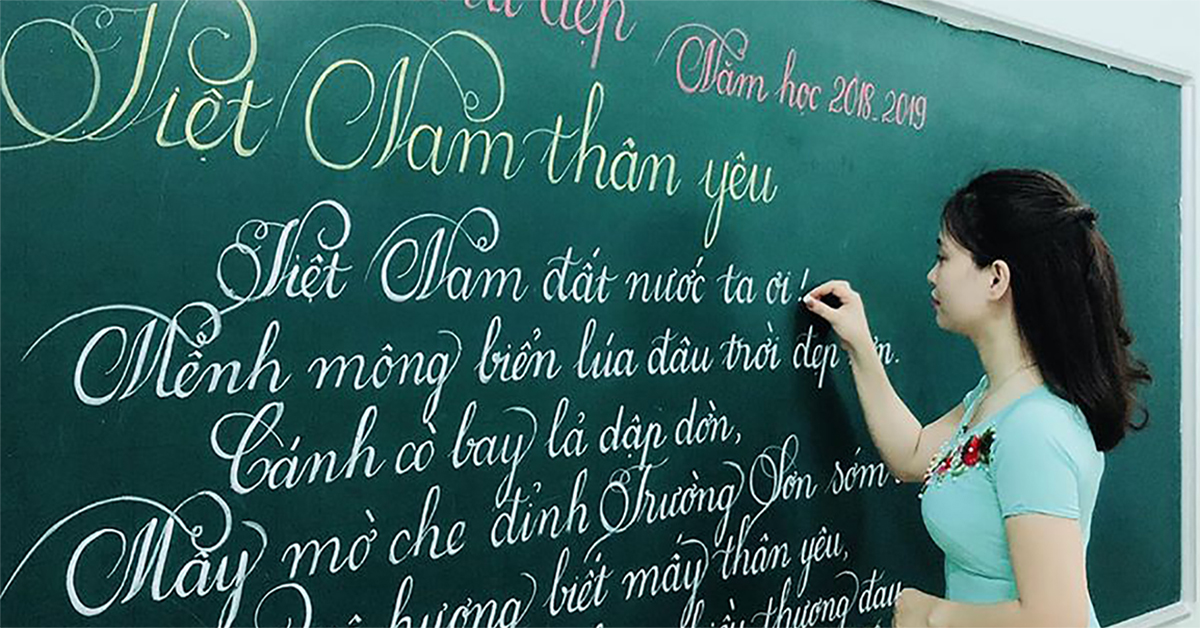 đẹp
Năm học 2018-2019
Việt Nam thân yêu
Việt Nam đất nước ta ơi!
Mênh mông biển lúa đâu trời đẹp
Cánh cò bay lả dập dờn,
Mây mờ che đỉnh Trường Sơn sớm
hương biết mấy thân yêu,
thương đau